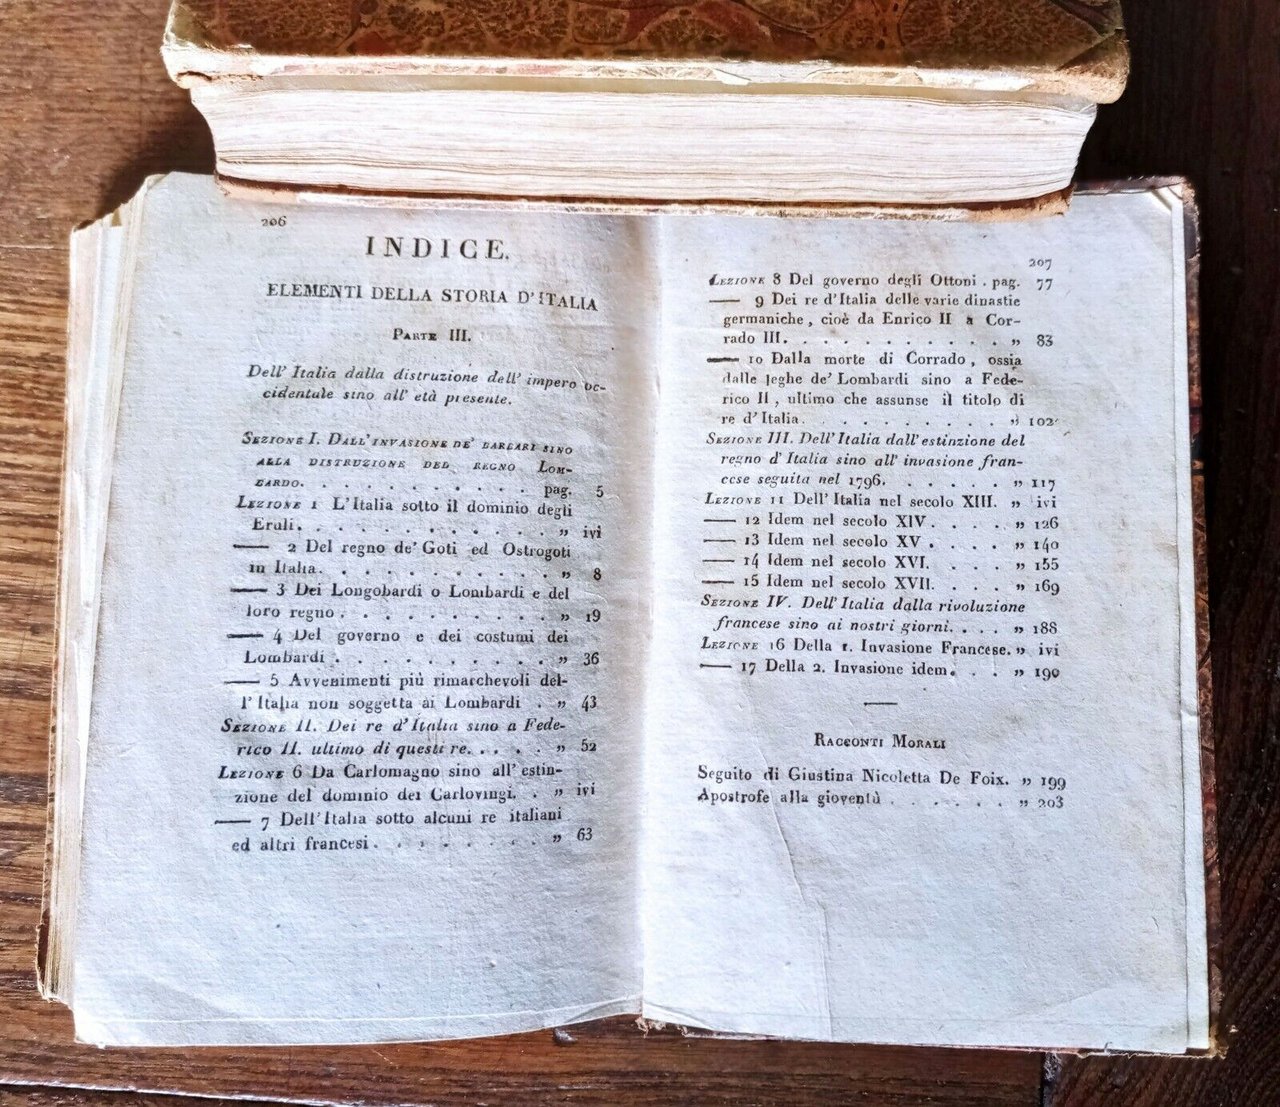 206
INDICE.
ELEMENTI DELLA STORIA D'ITALIA
PARTE III.
Dell' Italia dalla distruzione dell' impero oc-
cidentale sino all' età presente.
SEZIONE I. DALL'INVASIONE DE' BARBARI SINO
ALLA DISTRUZIONE DEL REGNO LOM-
BARDO. . . . . . . . . . . pag. 5
LEZIONE 1 L'Italia sotto il dominio degli
Eruli. . . . . . . . . . . . „ ivi
— 2 Del regno de' Goti ed Ostrogoti
in Italia. . . . . . . . . . . „ 8
— 3 Dei Longobardi o Lombardi e del
loro regno . . . . . . . . . . „ 19
— 4 Del governo e dei costumi dei
Lombardi . . . . . . . . . . „ 36
— 5 Avvenimenti più rimarchevoli del-
l'Italia non soggetta ai Lombardi . „ 43
SEZIONE II. Dei re d'Italia sino a Fede-
rico II. ultimo di questi re. . . . . „ 52
LEZIONE 6 Da Carlomagno sino all' estin-
zione del dominio dei Carlovingi. . „ ivi
— 7 Dell'Italia sotto alcuni re italiani
ed altri francesi . . . . . . . . „ 63
207
LEZIONE 8 Del governo degli Ottoni . pag. 77
— 9 Dei re d'Italia delle varie dinastie
germaniche, cioè da Enrico II a Cor-
rado III. . . . . . . . . . . . „ 83
— 10 Dalla morte di Corrado, ossia
dalle leghe de' Lombardi sino a Fede-
rico II, ultimo che assunse il titolo di
re d'Italia. . . . . . . . . . . „ 102
SEZIONE III. Dell'Italia dall'estinzione del
regno d'Italia sino all' invasione fran-
cese seguita nel 1796. . . . . . „ 117
LEZIONE 11 Dell'Italia nel secolo XIII. „ ivi
— 12 Idem nel secolo XIV . . . . „ 126
— 13 Idem nel secolo XV . . . . „ 140
— 14 Idem nel secolo XVI. . . . . „ 155
— 15 Idem nel secolo XVII. . . . . „ 169
SEZIONE IV. Dell'Italia dalla rivoluzione
francese sino ai nostri giorni. . . . „ 188
LEZIONE 16 Della 1. Invasione Francese. „ ivi
— 17 Della 2. Invasione idem. . . „ 190
RACCONTI MORALI
Seguito di Giustina Nicoletta De Foix. „ 199
Apostrofe alla gioventù . . . . . . „ 203